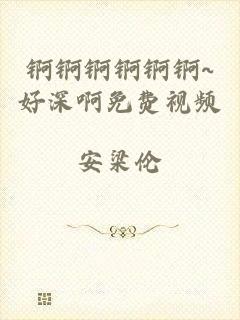 锕锕锕锕锕锕~
好深啊免费视频
安梁伦